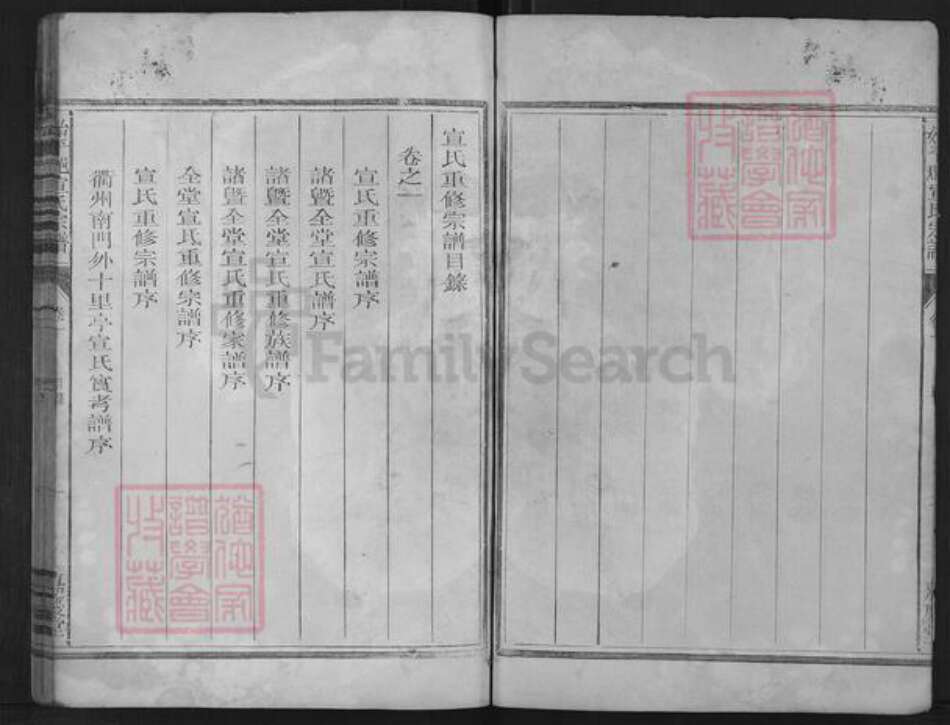 宣氏重修宗譜目錄
卷之一
宣氏重修宗譜序
諸暨仝堂宣氏譜序
諸暨仝堂宣氏重修族譜序
諸暨仝堂宣氏重修家譜序
仝堂宣氏重修宗譜序
宣氏重修宗譜序
衢州南門外十里亭宣氏實考譜序
FamilySearch